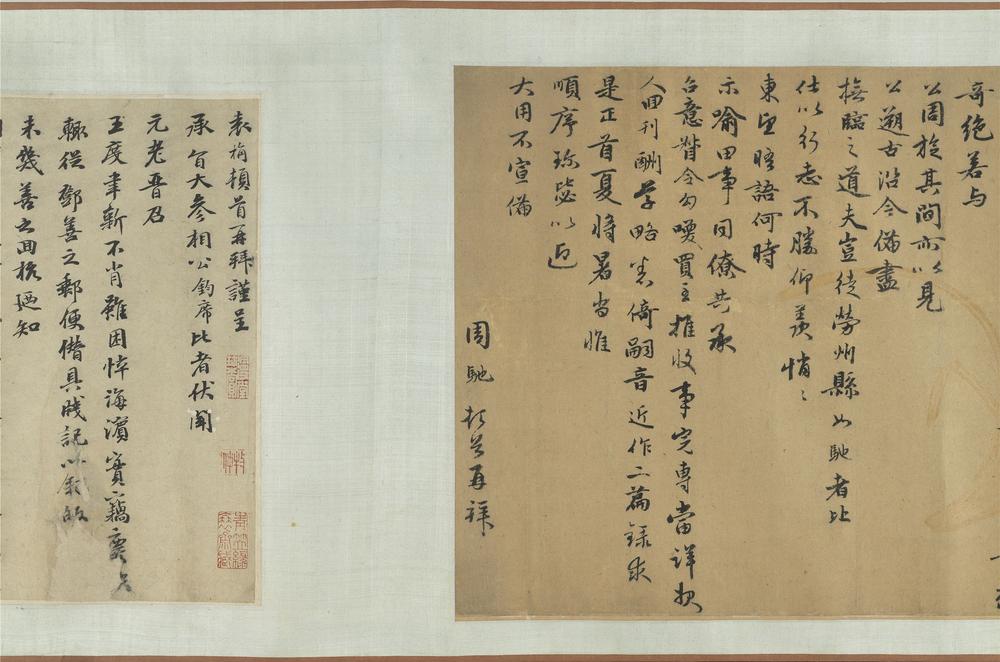 奇絕善与
公周旋其間亦以見
公遡古沿今備盡
橅臨之道夫豈徒勞州縣如馳者比
仕以行志不勝仰羨悄〻
東望晤語何時
示喻田事同僚共承
台意督令勾喚買主推收事完專當詳報
人回刊酬草略希倚嗣音近作二篇録求
是正首夏將暑尚惟
順序珍毖以迓
大用不宣備
周馳頓首再拜
袁桷頓首再拜謹呈
承旨大參相公鈞席比者伏聞
元老晋召
玉度聿新不肖雖困悴海濱實竊慶
輒從鄧善之郵便僣具牋記以叙
未幾善之回抵廼知